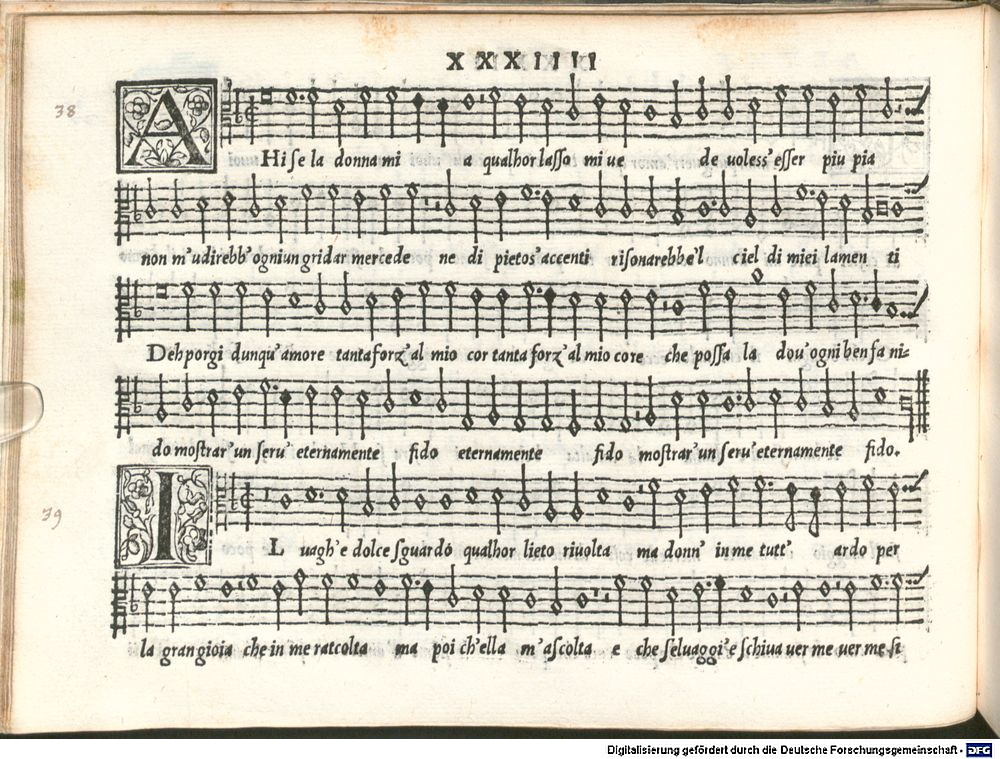 XXXIIII
38
A
Hi se la donna mi a qualhor lasso mi ue de uoless' esser piu pia
non m'udirebb' ogniun gridar mercede ne di pietos' accenti risonarebbe'l ciel di miei lamen ti
Deh porgi dunqu' amore tanta forz' al mio cor tanta forz' al mio core che possa la dou' ogni ben fa ni=
do mostrar' un seru' eternamente fido eternamente fido mostrar' un seru' eternamente fido.
39
I
L uagh' e dolce sguardo qualhor lieto riuolta ma donn' in me tutt' ardo per
la gran gioia che in me ratcolta ma poi ch'ella m'ascolta e che seluaggi' e schiua uer me uer me si
Digitalisierung gefördert durch die Deutsche Forschungsgemeinschaft - DFG